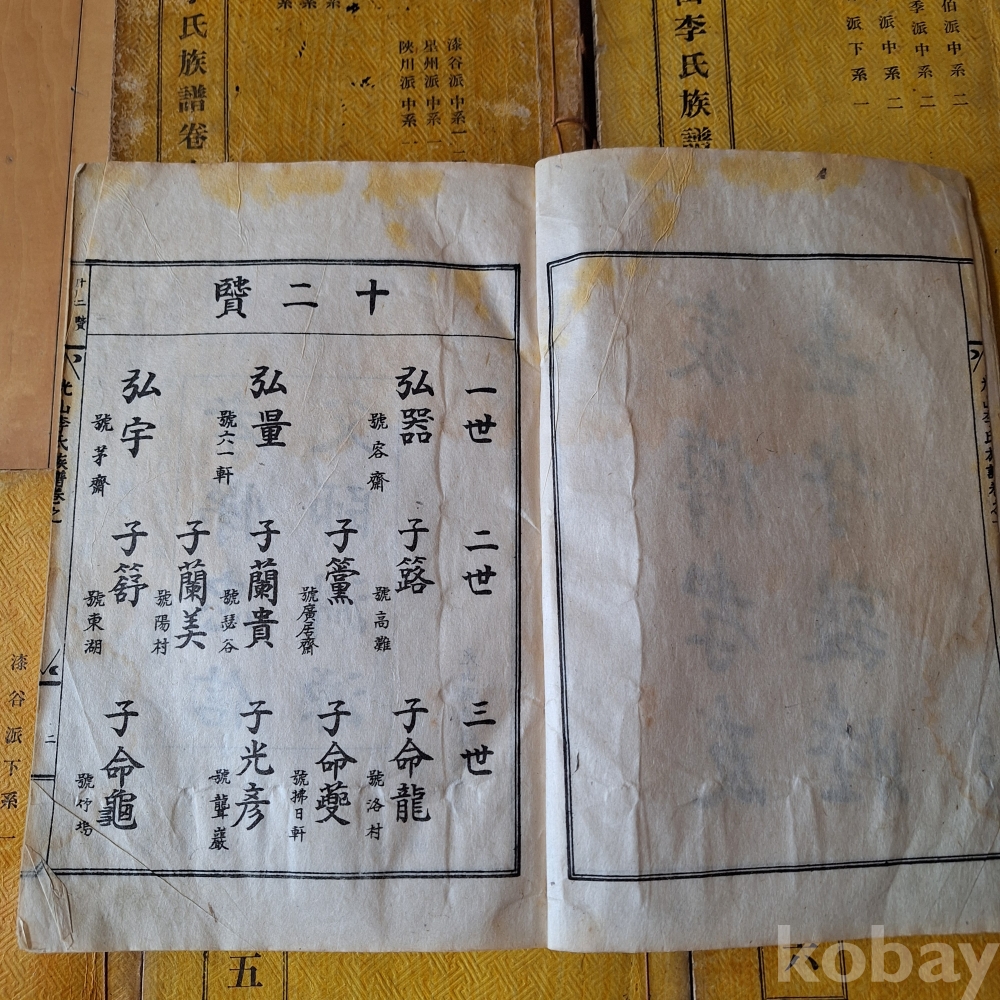 李氏族譜卷
漆谷派中系一
星州派中系一
陜川派中系一
山李氏族譜
伯派中系二
季派中系二
派中系二
派下系一
十二賢
一世
弘器
號容齋
弘量
號六一軒
弘宇
號茅齋
二世
子簬
號高灘
子簥
號廣居齋
子蘭貴
號瑟谷
子蘭美
號陽村
子䈰
號東湖
三世
子命龍
號洛村
子命夔
號拂日軒
子光彥
號聾巖
子命龜
號竹塢
十二賢
光山李氏族譜卷之一
二
光山李氏族譜卷之
漆谷派下系一
五
六
kobay